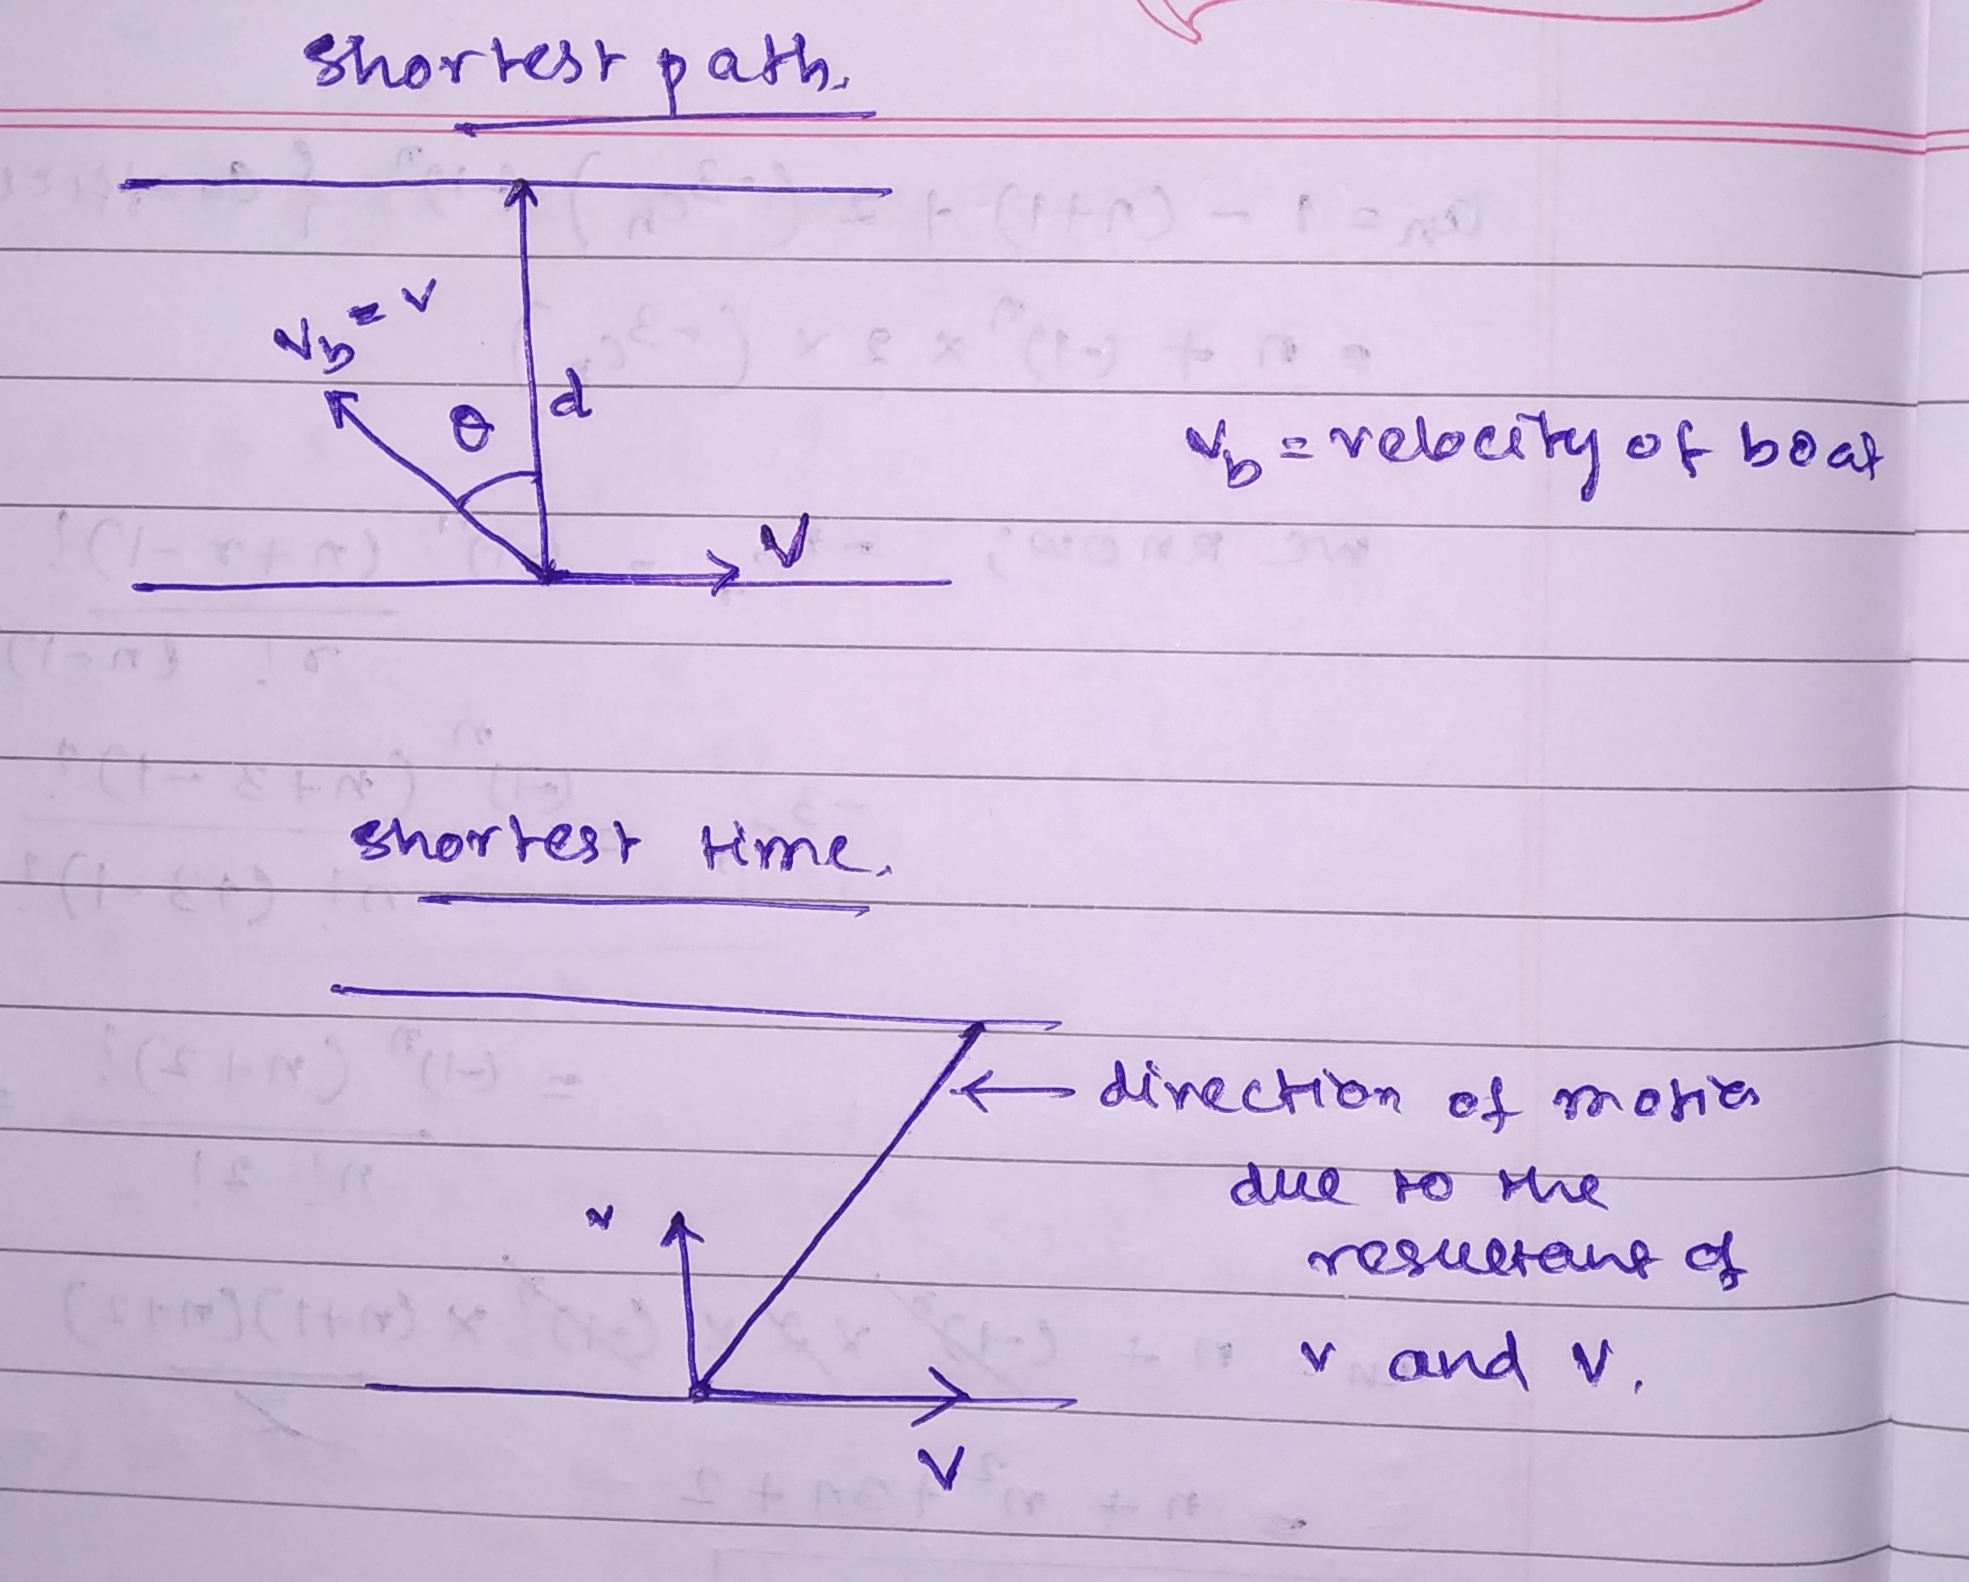 shortest path.
v_b = v
θ
d
v_b = velocity of boat
V
shortest time.
← direction of motion
due to the
v
resultant of
v and V.
V